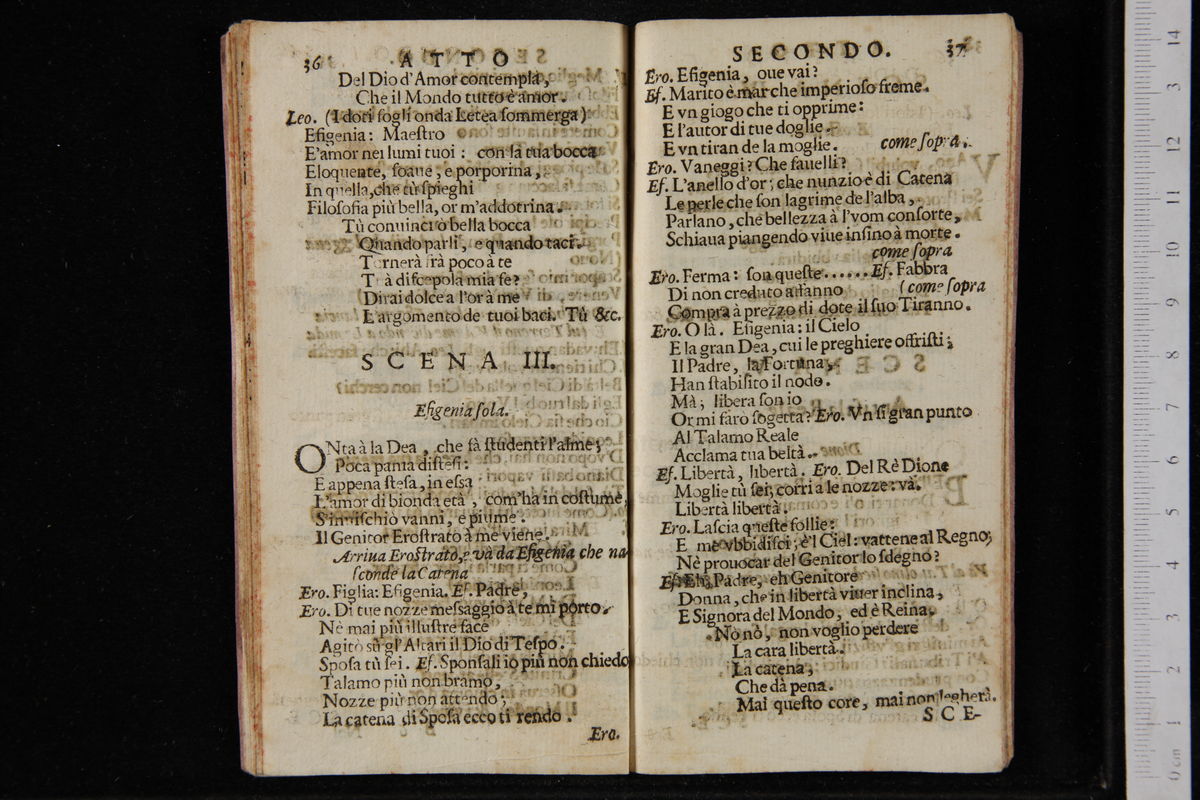 36 ATTO
Del Dio d'Amor contempla,
Che il Mondo tutto è amor.
Leo. (I dori sogli onda Letea sommerga)
Efigenia: Maestro
E'amor nei lumi tuoi: con la tua bocca
Eloquente, soaue, e porporina,
In quella, che tù spieghi
Filosofia più bella, or m'addotrina.
Tù conuinci o bella bocca
Quando parli, e quando taci.
Tornerà frà poco à te
T à discepola mia fe?
Dirai dolce a l'or à me
E argomento de tuoi baci. Tù &c.
SCENA III.
Efigenia sola.
ONta à la Dea, che fà studenti l'alme;
Poca pania distesi:
E appena stesa, in essa
L'amor di bionda età, com'ha in costume,
S'inuischiò vanni, e piume:
Il Genitor Erostrato à me viene.
Arriua Erostrato, e và da Efigenia che na-
sconde la Catena
Ero. Figlia: Efigenia. Ef. Padre,
Ero. Di tue nozze messaggio à te mi porto.
Nè mai più illustre face
Agitò sù gl'Altari il Dio di Tespo.
Sposa tù sei. Ef. Sponsali io più non chiedo
Talamo più non bramo,
Nozze più non attendo;
La catena di Sposa ecco ti rendo.
Ero.
SECONDO. 37
Ero. Efigenia, oue vai?
Ef. Marito è mar che imperioso freme.
E vn giogo che ti opprime:
E l'autor di tue doglie.
E vn tiran de la moglie. come sopra.
Ero. Vaneggi? Che fauelli?
Ef. L'anello d'or; che nunzio è di Catena
Le perle che son lagrime de l'alba,
Parlano, che bellezza à l'vom consorte,
Schiaua piangendo viue insino à morte.
come sopra
Ero. Ferma: son queste...... Ef. Fabbra
Di non creduto affanno (come sopra
Compra à prezzo di dote il suo Tiranno.
Ero. O là. Efigenia: il Cielo
E la gran Dea, cui le preghiere offristi;
Il Padre, la Fortuna,
Han stabilito il nodo.
Mà; libera son io
Or mi farò sogetta? Ero. Vn sì gran punto
Al Talamo Reale
Acclama tua beltà.
Ef. Libertà, libertà. Ero. Del Rè Dione
Moglie tù sei; corri a le nozze: và.
Libertà libertà.
Ero. Lascia queste follie:
E me vbbidisci; è'l Ciel: vattene al Regno;
Nè prouocar del Genitor lo sdegno?
Ef. Eh, Padre, eh Genitore
Donna, che in libertà viuer inclina,
E Signora del Mondo, ed è Reina.
No nò, non voglio perdere
La cara libertà.
La catena,
Che dà pena.
Mai questo core, mai non legherà.
SCE-